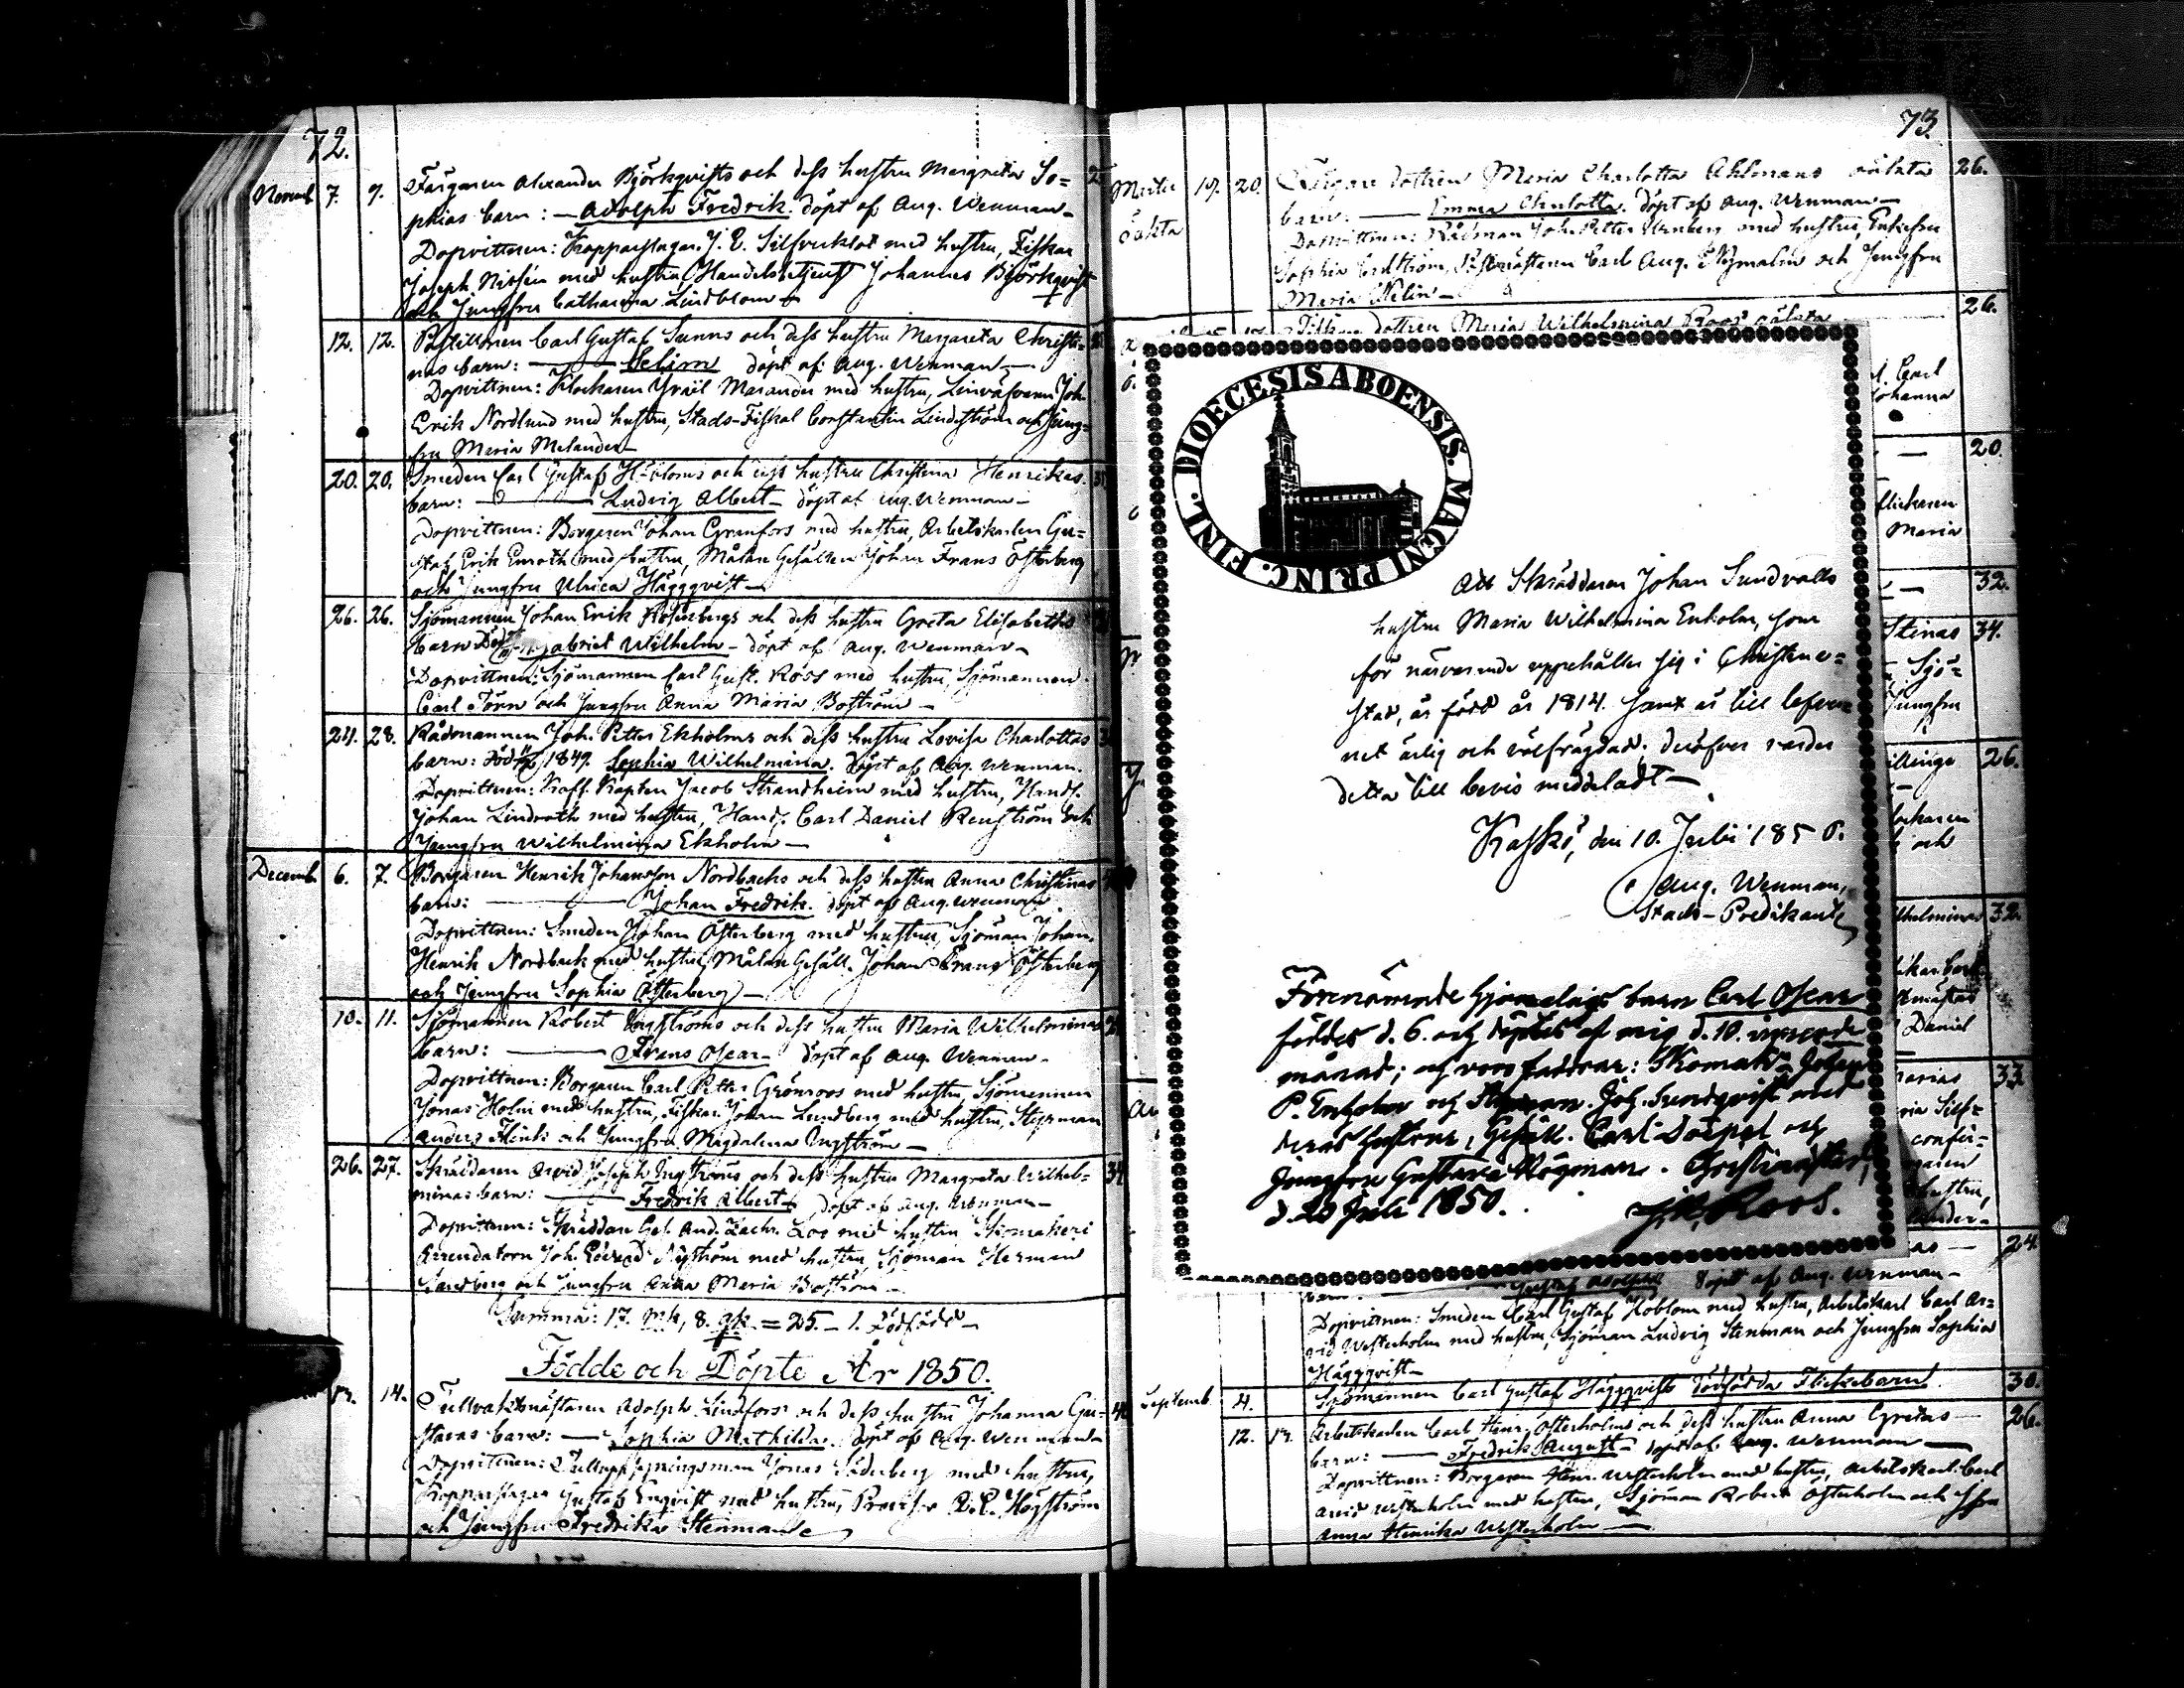 72.
Novemb. 7. 9. Färgaren Alexander Björkqvists och dess hustru Margreta So=
phias barn: — Adolph Fredrik. döpt af Aug. Wenman —
Dopvittnen: Kopparslagar. J. E. Silfverklot med hustru, Fiskar
Joseph Nissén med hustru, Handelsbetjent Johannes Björkqvist
och Jungfru Catharina Lindblom —
12. 12. Postillionen Carl Gustaf Sunns och dess hustru Margareta Christi=
nas barn: — Selim döpt af Aug. Wenman —
Dopvittnen: Klockaren Israël Marander med hustru, Linväfvaren Joh.
Erik Nordlund med hustru, Stads-Fiskal Constantin Lindeström och Jung=
fru Maria Melander —
20. 20. Smeden Carl Gustaf och dess hustru Christina Henrikas
barn: — Ludvig Albert — döpt af Aug. Wenman —
Dopvittnen: Borgaren Johan Granfors med hustru, Arbetskarlen Gu=
staf Erik Enroth med hustru, Målare Gesällen Johan Frans Österberg
och Jungfru Ulrica Häggqvist —
26. 26. Sjömannen Johan Erik Rosenbergs och dess hustru Greta Elisabeths
barn Gabriel Wilhelm — döpt af Aug. Wenman —
Dopvittnen: Sjömannen Carl Gust. Roos med hustru, Sjömannen
Carl Törn och Jungfru Anna Maria Boström —
24. 28. Rådmannen Joh. Petter Ekholms och dess hustru Lovisa Charlottas
barn: 1849. Sophia Wilhelmina. Döpt af Aug. Wenman.
Dopvittnen: Koff. Kapten Jacob Strandheim med hustru, Handl.
Johan Lindroth med hustru, Handl. Carl Daniel Renström och
Jungfru Wilhelmina Ekholm —
Decemb. 6. 7. Borgaren Henrik Johansson Nordbacks och dess hustru Anna Christinas
barn: — Johan Fredrik. döpt af Aug. Wenman
Dopvittnen: Smeden Johan Österberg med hustru, Sjöman Johan
Henrik Nordback med hustru, Målare Gesäll. Johan Frans Österberg
och Jungfru Sophia Österberg —
10. 11. Sjömannen Robert Engströms och dess hustru Maria Wilhelminas
barn: — Frans Oscar — döpt af Aug. Wenman —
Dopvittnen: Borgaren Carl Petter Grönroos med hustru, Sjömannen
Jonas Holm med hustru, Fiskar. Johan Lundberg med hustru, Styrman
Anders och Jungfru Magdalena Nyström —
26. 27. Skräddaren Arvid Joseph Engströms och dess hustru Margreta Wilhel=
minas barn: — Fredrik Albert — döpt af Aug. Wenman —
Dopvittnen: Skräddare Ges. And. Zachr. Loo med hustru Skomakeri
Arrendatorn Joh. Edvard Nyström med hustru, Sjöman Herman
Sandberg och Jungfru Anna Maria Boström —
Summa: 17. mk, 8. qk = 25. — 1. dödfödd —
Födde och Döpte År 1850.
14. Tullvaktmästaren Adolph Lindfors och dess hustru Johanna Gu=
stavas barn: — Sophia Mathilda. döpt af Aug. Wenman —
Dopvittnen: Tulluppsyningsman Jonas Söderberg med hustru,
Kopparslagar Gustaf Enqvist med hustru, Provisor Högström
och Jungfru Fredrika Stenman
73.
Martii 19. 20. Färgare dottren Maria Charlotta Ahlmans oäkta 26.
Oäkta barn: — Emma Charlotta. döpt af Aug. Wenman —
Dopvittnen: Rådman Joh. Petter med hustru, Enkefru
Sophia Carlström, Carl Aug. Nymalm och Jungfru
Maria Velin —
dottren Maria Wilhelmina Roos oäkta 26.
DIOECESIS ABOENSIS. MAGNI PRINC. FINL.
Att Skräddaren Johan Sundvalls
hustru Maria Wilhelmina Enholm, som
för närvarande uppehåller sig i Christine=
stad, är född år 1814. samt är till lefver=
net ärlig och välfrägdad; deröfver varder
detta till bevis meddeladt —
Kaskö, den 10. Julii 1850.
Aug. Wenman,
Stads-Predikant
Förenämnde barn Carl Oscar
föddes d. 6. och döptes af mig d. 10.
månad; och voro faddrar:
P. Enholm och Joh. Sundqvist med
deras hustrur, Gesäll. Carl och
Jungfru Gustava
d. 20 Juli 1850. Roos.
Carl
Johanna
20.
Maria
32.
Stinas 34.
Sjö=
Jungfru
26.
och
32.
Daniel
33.
24.
Gustaf Adolph döpt af Aug. Wenman —
Dopvittnen: Smeden Carl Gustaf med hustru, Arbetskarl Carl Ar=
vid Westerholm med hustru, Sjöman Ludvig Stenman och Jungfru Sophia
Häggqvist —
Septemb. 4. Sjömannen Carl Gustaf Häggqvists dödfödda Flickebarn 30.
12. Arbetskarlen Carl Henr. Österholms och dess hustru Anna Gretas — 26.
barn: — Fredrik August — döpt af Aug. Wenman —
Dopvittnen: Borgaren Henr. Westerholm med hustru, Arbetskarl. Carl
Arvid Westerholm med hustru, Sjöman Robert Österholm och Jfru
Anna Henrika Westerholm —